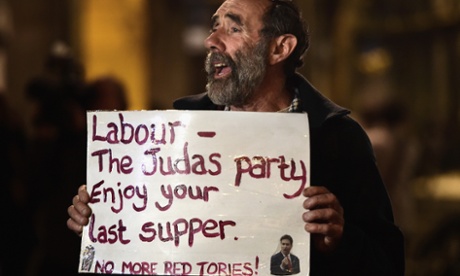 Labour –
The Judas party
Enjoy your
last supper.
NO MORE RED TORIES!